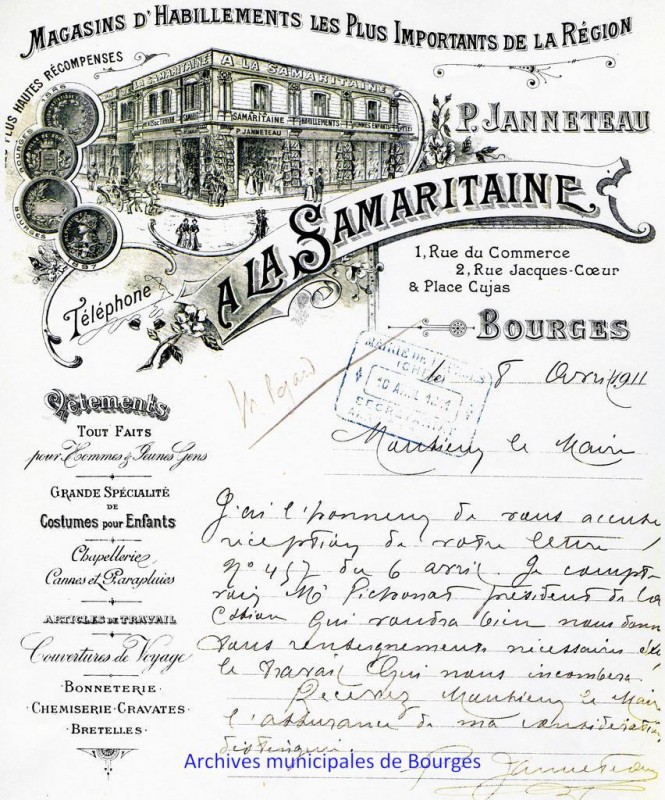 MAGASINS D'HABILLEMENTS LES PLUS IMPORTANTS DE LA RÉGION
LES PLUS HAUTES RÉCOMPENSES
A LA SAMARITAINE
SAMARITAINE HABILLEMENTS
P. JANNETEAU
P. JANNETEAU
A LA SAMARITAINE
1, Rue du Commerce
2, Rue Jacques-Cœur
& Place Cujas
Téléphone
BOURGES
le 8 Avril 1911
MAIRIE DE BOURGES
10 AVRIL 1911
SECRÉTARIAT
Monsieur le Maire
Vêtements
TOUT FAITS
pour Hommes & Jeunes Gens
GRANDE SPÉCIALITÉ
DE
Costumes pour Enfants
Chapellerie
Cannes et Parapluies
ARTICLES DE TRAVAIL
Couvertures de Voyage
BONNETERIE
CHEMISERIE - CRAVATES
BRETELLES
J'ai l'honneur de vous accuser
réception de votre lettre
N° 457 du 6 avril. Je
Mr président de la
qui voudra bien nous donner
tous renseignements nécessaires
le travail qui nous incombera
Recevez Monsieur le Maire
l'assurance de ma considération
distinguée
P. Janneteau
Archives municipales de Bourges